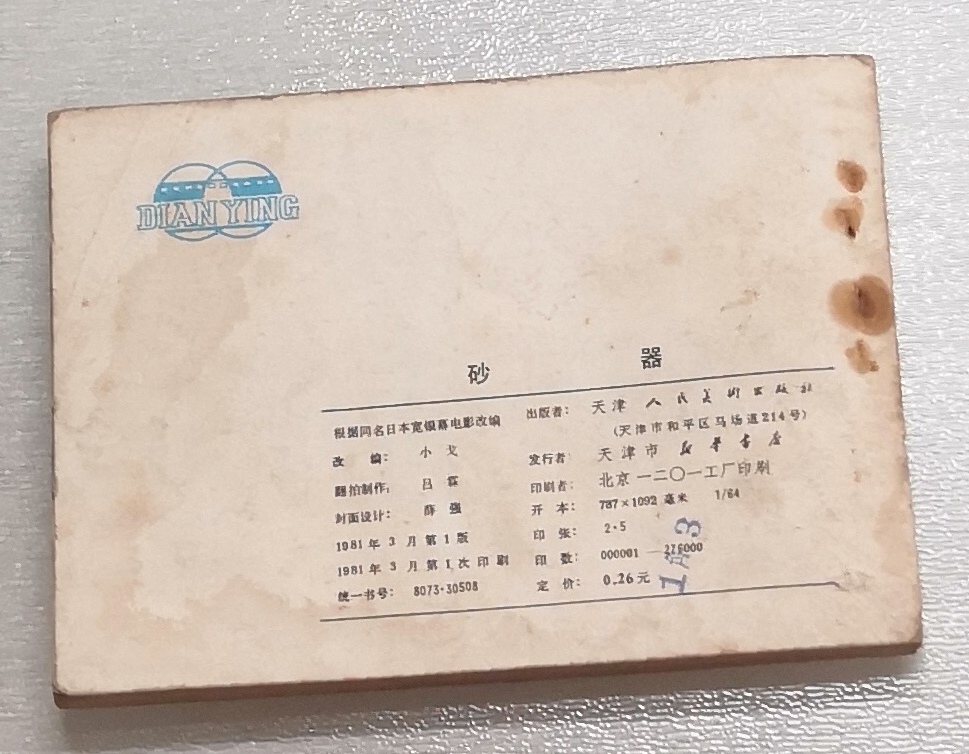 DIANYING
砂 器
根据同名日本宽银幕电影改编
改 编: 小 戈
翻拍制作: 吕 霖
封面设计: 薛 强
1981年3月第1版
1981年3月第1次印刷
统一书号: 8073·30508
出版者: 天津人民美术出版社
(天津市和平区马场道214号)
发行者: 天津市新华书店
印刷者: 北京一二〇一工厂印刷
开 本: 787×1092 毫米 1/64
印 张: 2·5
印 数: 000001—276000
定 价: 0.26元